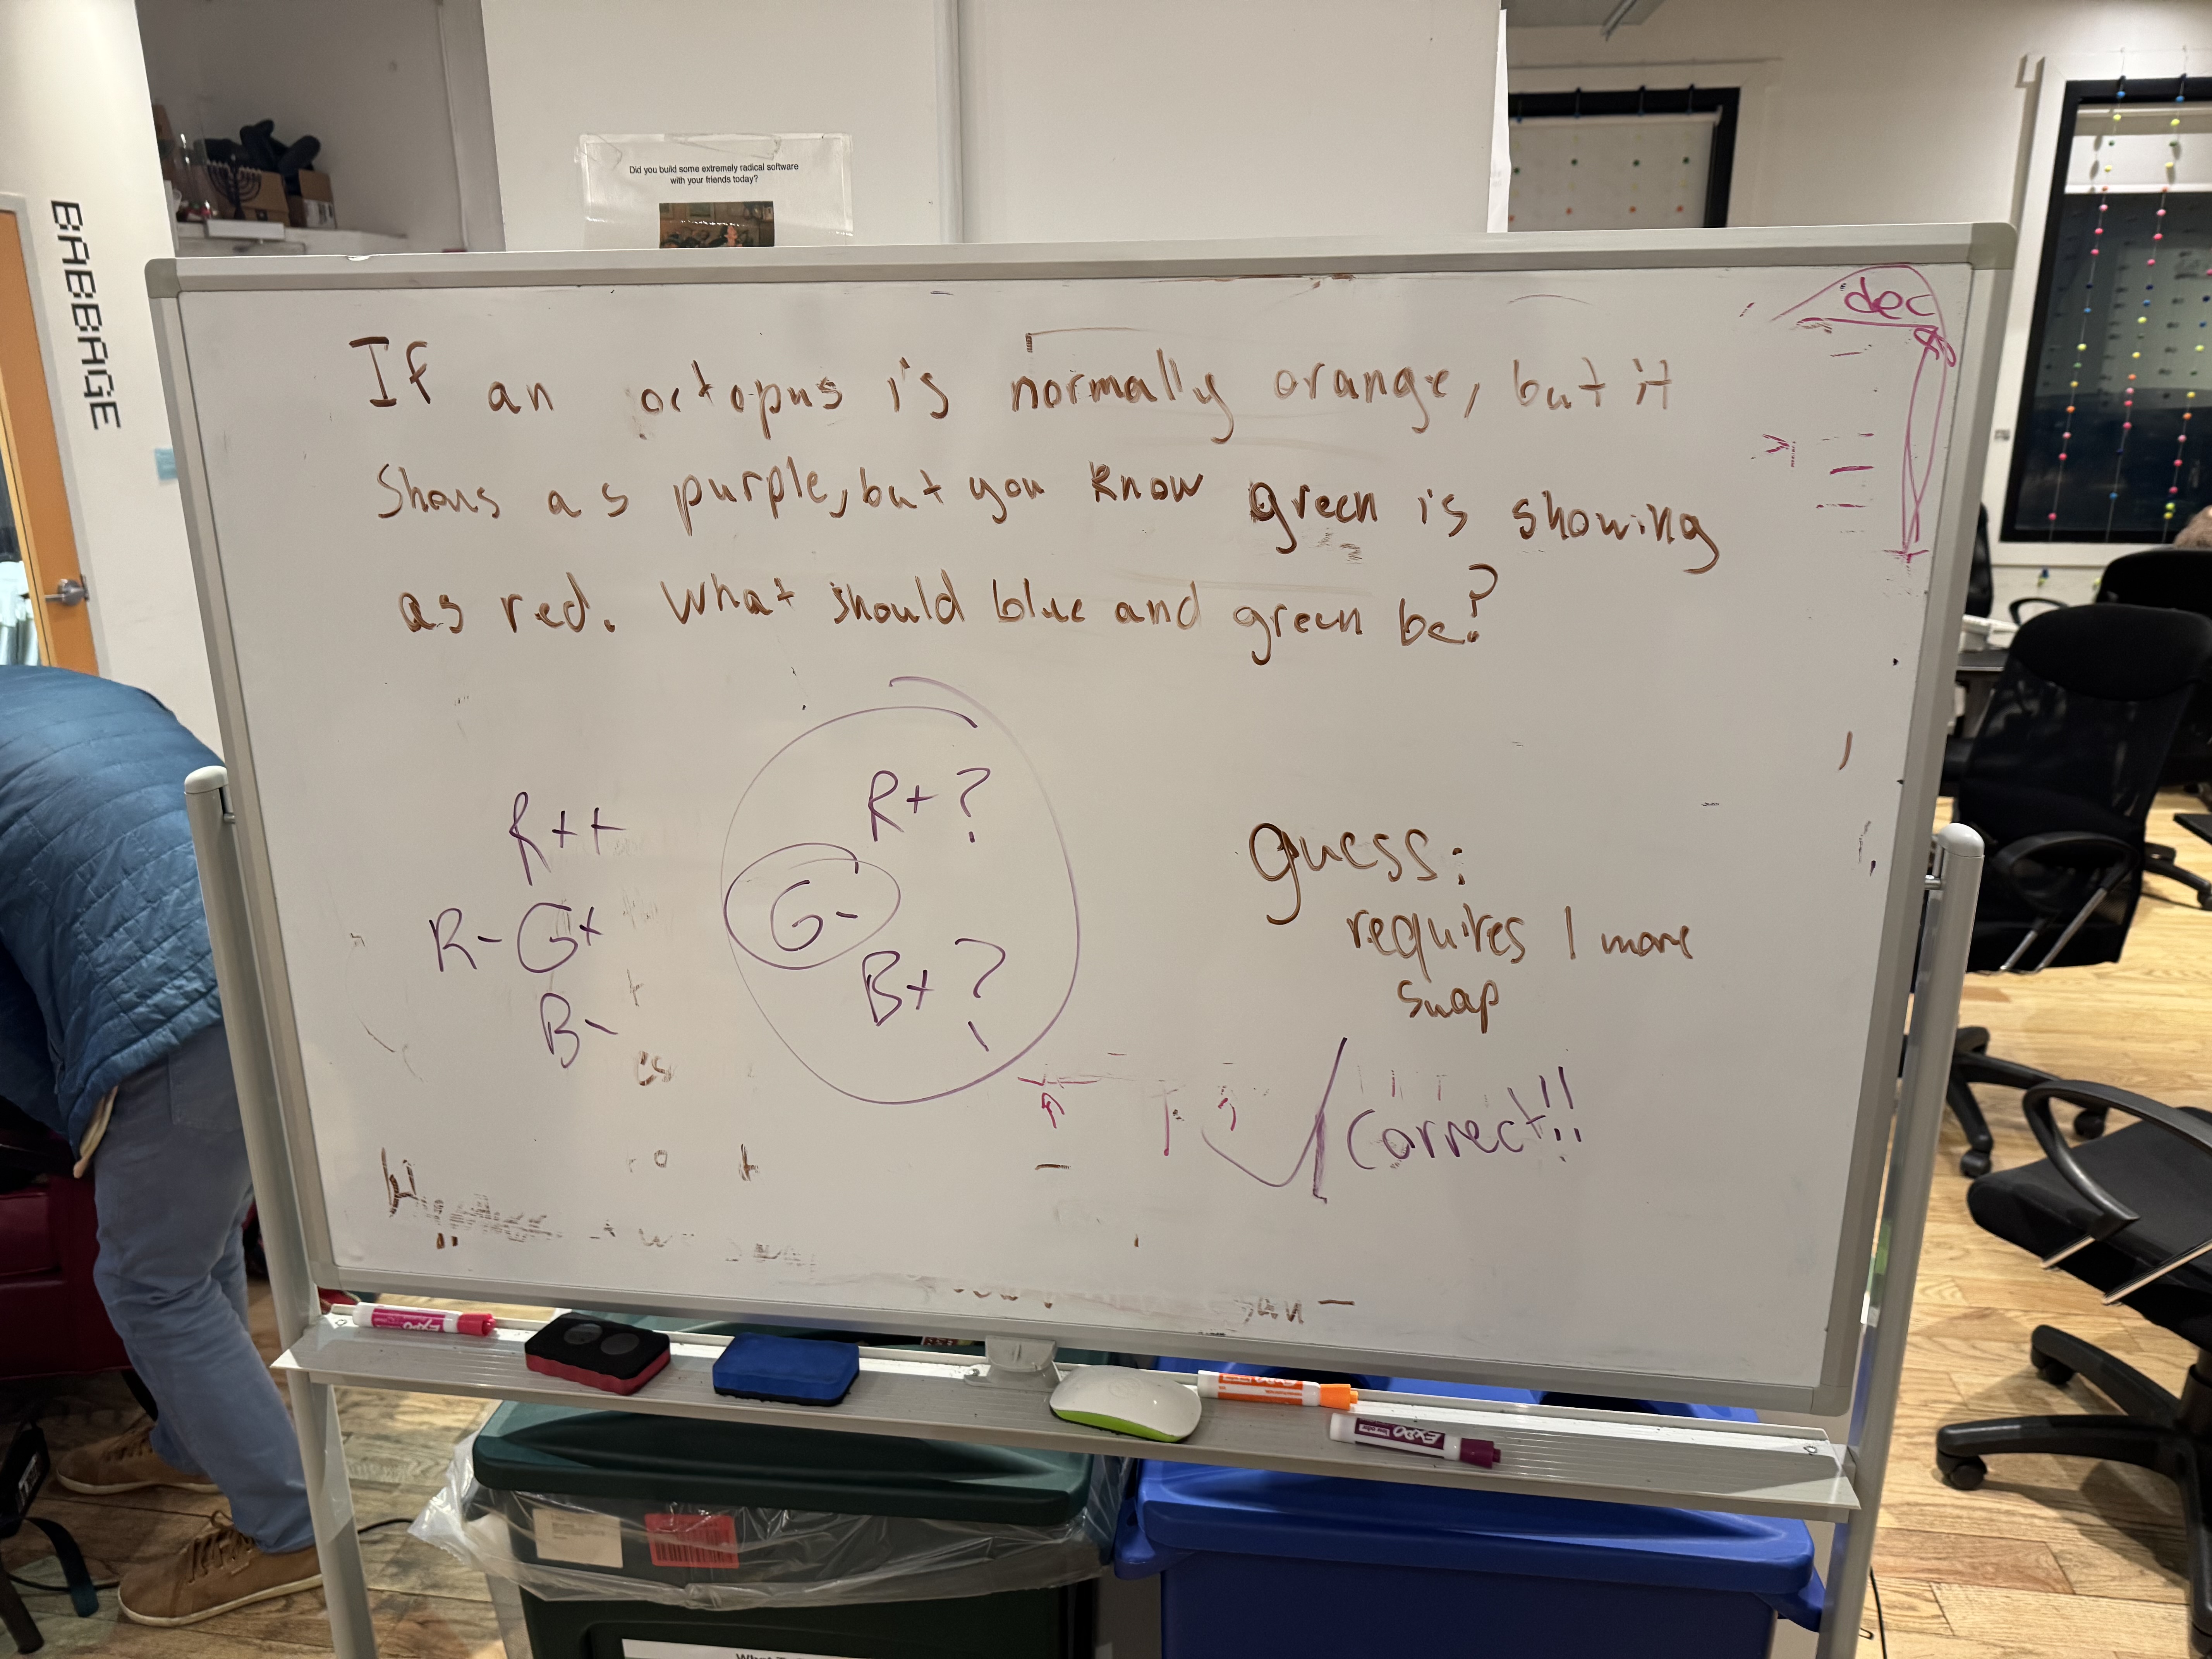 BABBAGE
Did you build some extremely radical software
with your friends today?
dec
If an octopus is normally orange, but it
shows as purple, but you know green is showing
as red. What should blue and green be?
R++
R- G+
B-
R+ ?
G-
B+ ?
guess:
requires 1 more
swap
Correct!!
EXPO
EXPO
EXPO